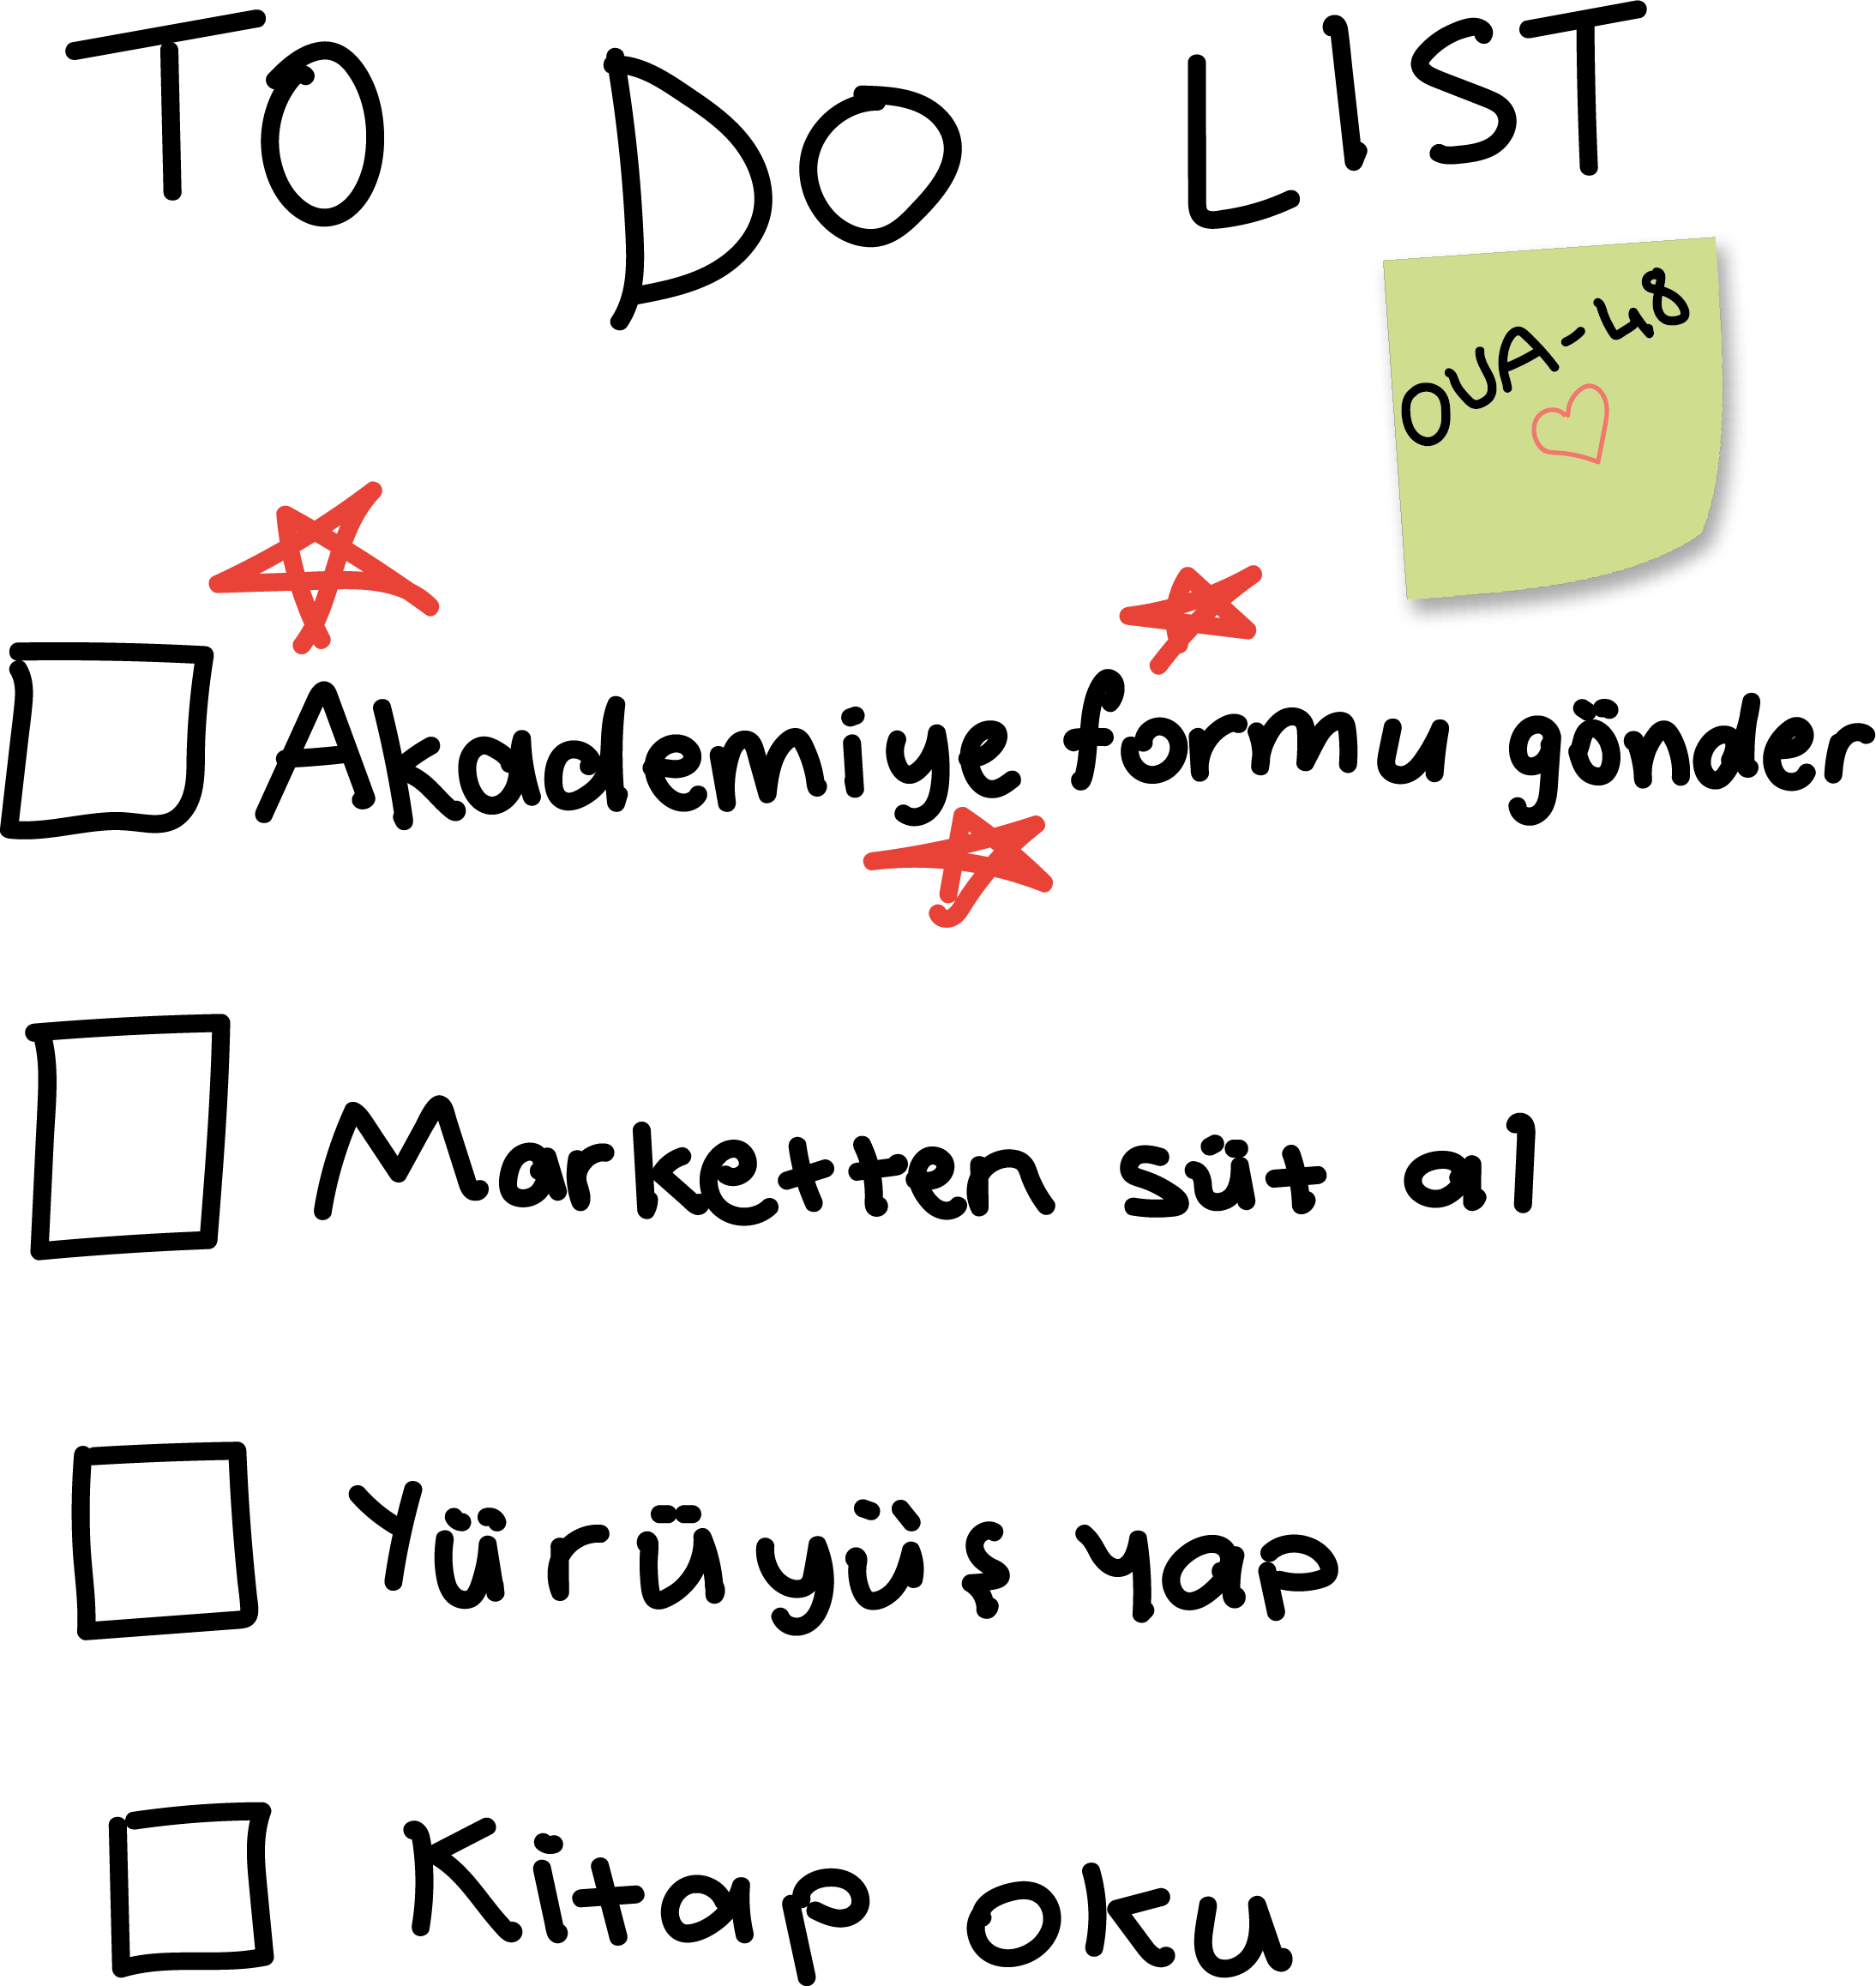 TO DO LIST
OVA-48
Akademiye formu gönder
Marketten süt al
Yürüyüş yap
Kitap oku